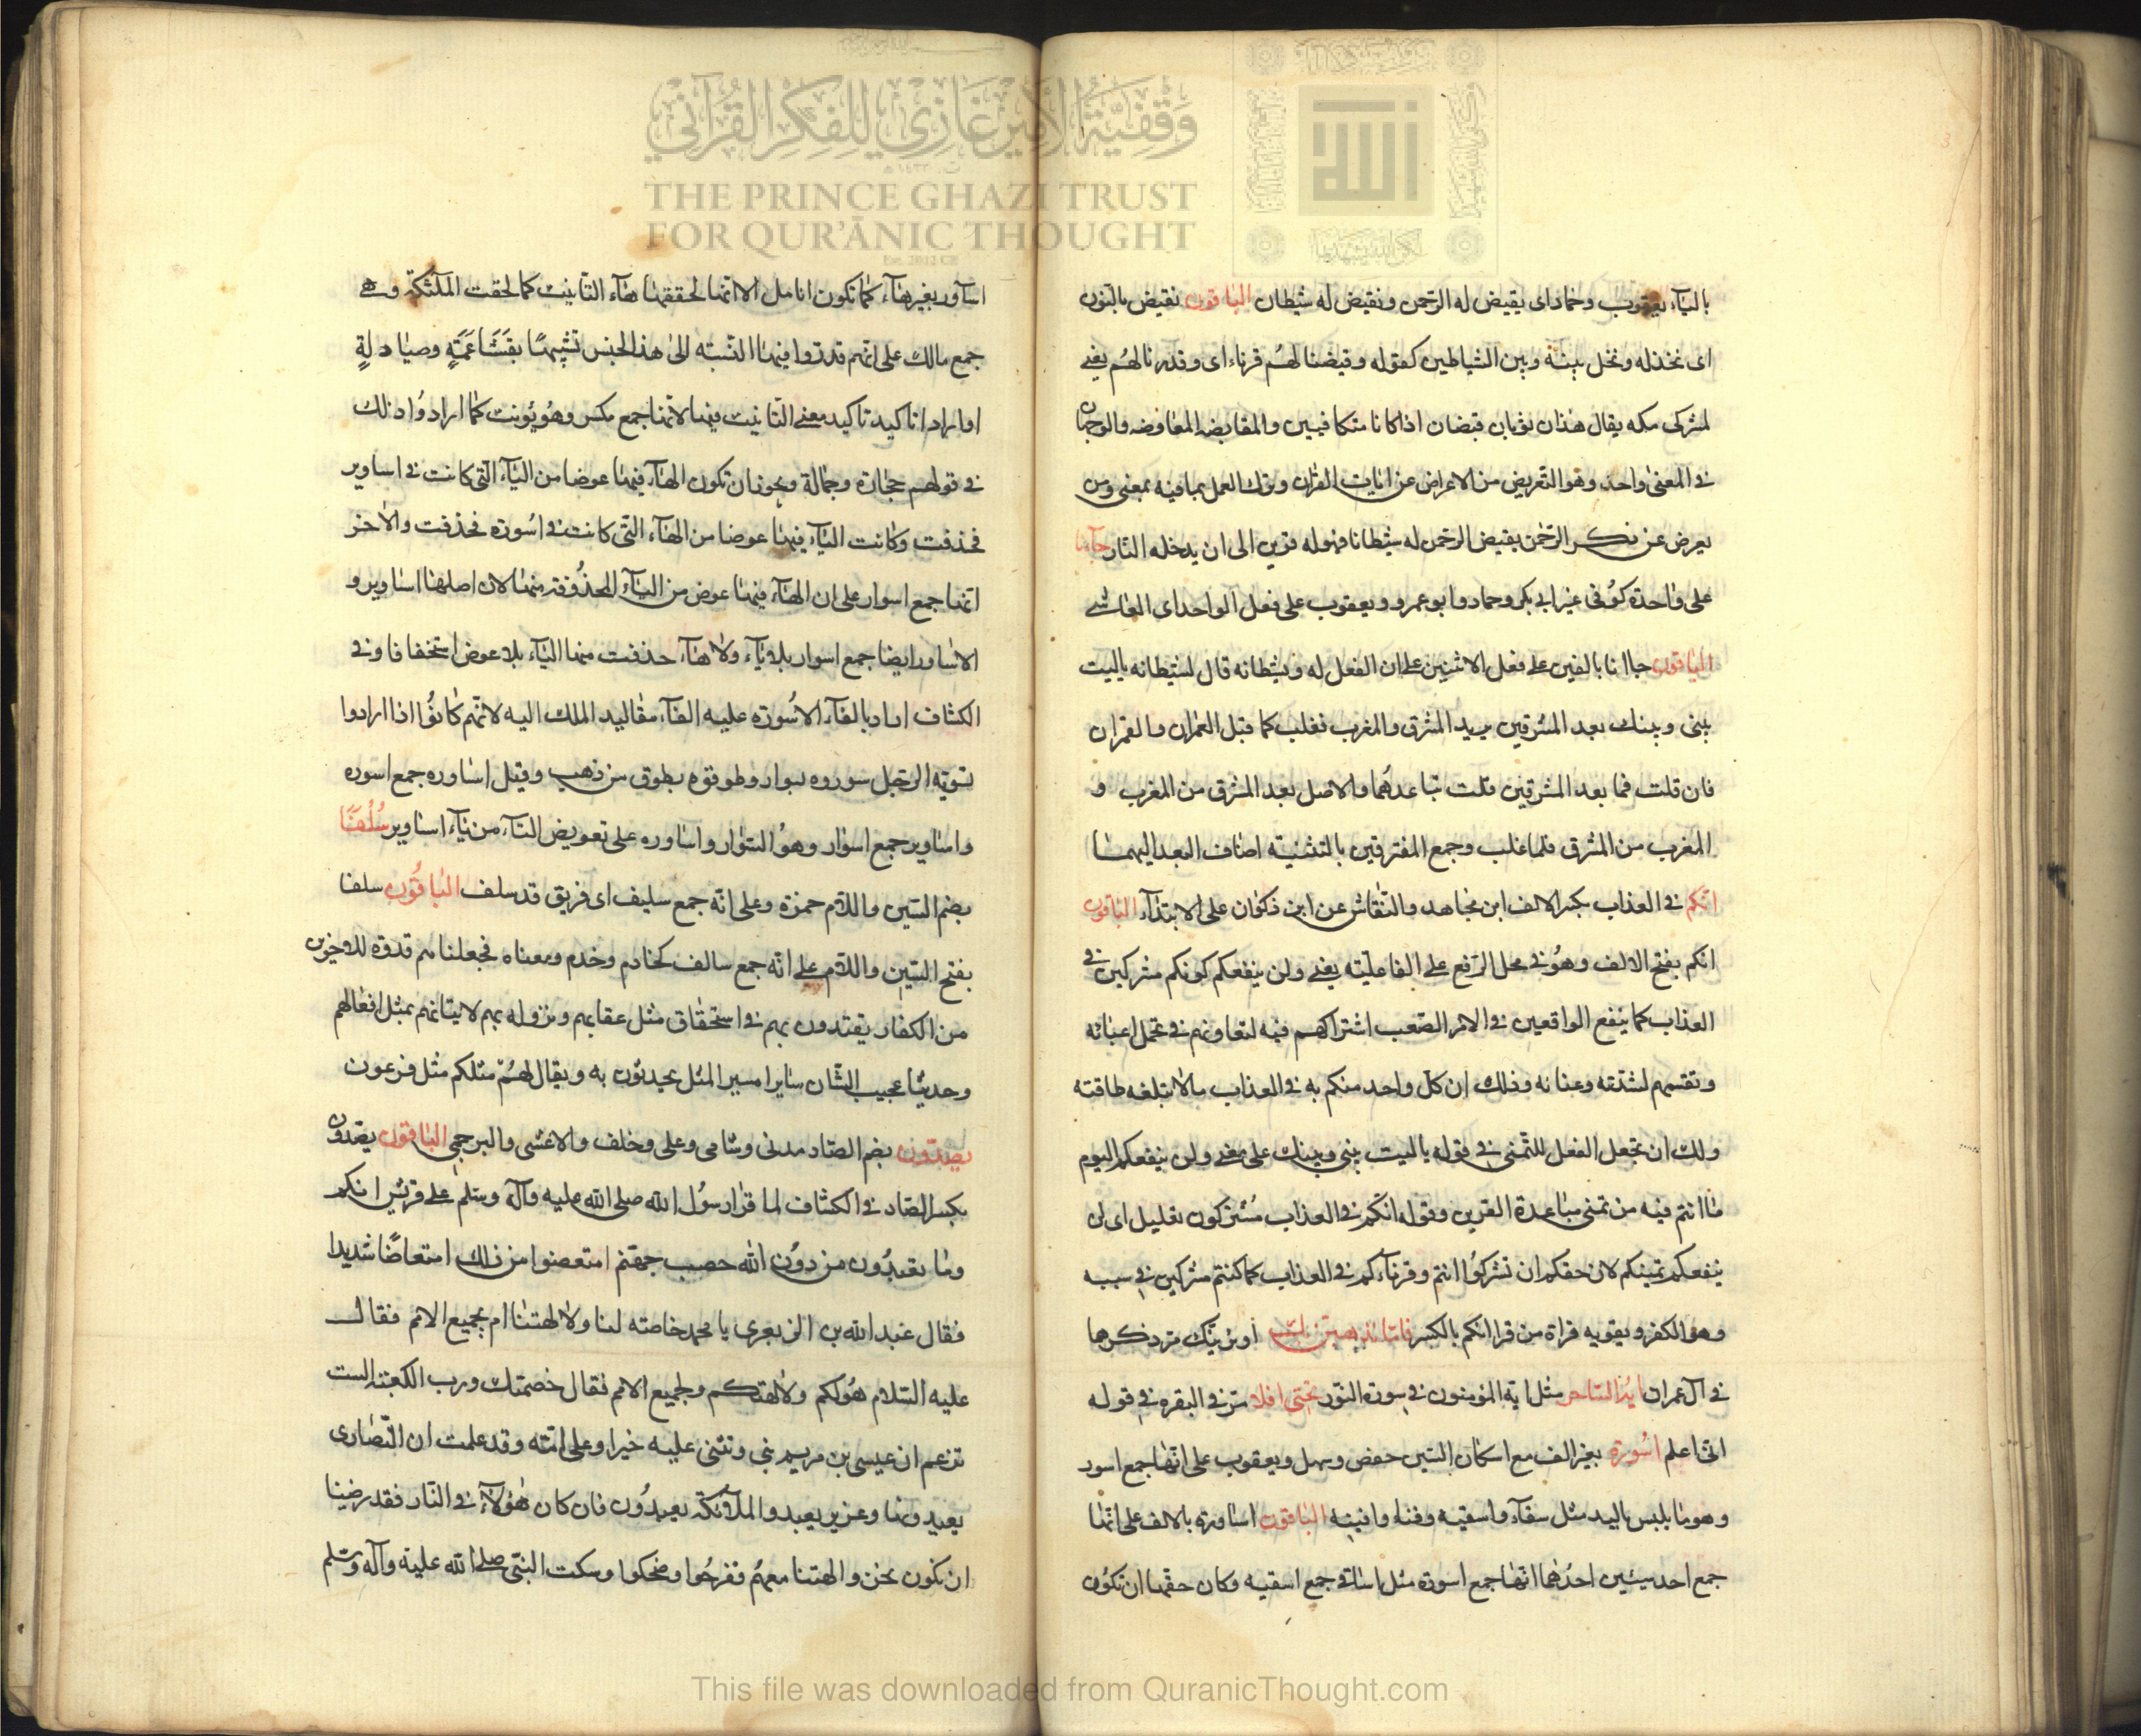 بالياء يعقوب وحماد اى يقيض له الرحمن ونقيض له شيطان الباقون نقيض بالنون
اى نخذله ونخل بينه وبين الشياطين كقوله وقيضنا لهم قرناء اى وقدرنا لهم يعنى
لمشركى مكه يقال هذان ثوبان قيضان اذا كانا متكافيين والمقايضه المعاوضه والوجهان
فى المعنى واحد وهو التعريض من الاعراض عن ايات القران وترك العمل بما فيه بمعنى ومن
يعرض عن ذكر الرحمن يقيض الرحمن له شيطانا فهو له قرين الى ان يدخله النار جآءنا
على واحدة كوفى غير ابى بكر وحماد وابو عمرو ويعقوب على فعل الواحد اى العاشى
الباقون جاانا بالفين على فعل الاثنين على ان الفعل له وشيطانه قال لشيطانه ياليت
بينى وبينك بعد المشرقين يريد المشرق والمغرب فغلب كما قيل العمران والقمران
فان قلت فما بعد المشرقين قلت تباعدهما والاصل بعد المشرق من المغرب و
المغرب من المشرق فلما غلب وجمع المفترقين بالتثنيه اضاف البعد اليهما
انكم فى العذاب بكسر الالف ابن مجاهد والنقاش عن ابن ذكوان على الابتدآء الباقون
انكم بفتح الالف وهو فى محل الرفع على الفاعليه يعنى ولن ينفعكم كونكم مشركين فى
العذاب كما ينفع الواقعين فى الامر الصعب اشتراكهم فيه لتعاونهم فى تحمل اعبائه
وتقسمهم لشدته وعنائه وذلك ان كل واحد منكم به فى العذاب مالا تبلغه طاقته
ولك ان تجعل الفعل للتمنى فى قوله ياليت بينى وبينك على معنى ولن ينفعكم اليوم
ماانتم فيه من تمنى مباعدة القرين وقوله انكم فى العذاب مشتركون تعليل اى لن
ينفعكم تمنيكم لان حقكم ان تشركوا انتم وقرناءكم فى العذاب كما كنتم مشركين فى سببه
وهو الكفر ويقويه قراة من قرا انكم بالكسر فاما نذهبن بك او نرينك مر ذكرها
فى آل عمران ايه الساحر مثل ايه المؤمنون فى سورة النور تحتى افلا مر فى البقره فى قوله
انى اعلم اسورة بغير الف مع اسكان السين حفص وسهل ويعقوب على انها جمع اسور
وهو ما يلبس باليد مثل سقآء واسقيه وفناء وافنيه الباقون اساورة بالالف على انها
جمع احد شيئين احدهما انها جمع اسورة مثل اساقى جمع اسقيه وكان حقها ان تكون
اساور بغير هاء كما تكون انامل الا انها لحقتها هاء التانيث كما لحقت الملئكة وهى
جمع مالك على انهم قدروا فيها النسبه الى هذا الجنس تشبيها بقشاعمة وصيادلة
او ارادوا تاكيد تاكيد معنى التانيث فيها لانها جمع مكسر وهو يونث كما ارادوا ذلك
فى قولهم حجارة وجمالة ويجوز ان تكون الهاء فيها عوضا من الياء التى كانت فى اساوير
فحذفت وكانت الياء فيها عوضا من الهاء التى كانت فى اسورة فحذفت والاخر
انها جمع اسوار على ان الهاء فيها عوض من الياء المحذوفة منها لان اصلها اساوير و
الاساور ايضا جمع اسوار بلا ياء ولا هاء حذفت منها الياء بلا عوض استخفافا وفى
الكشاف اراد بالقاء الاسورة عليه القاء مقاليد الملك اليه لانهم كانوا اذا ارادوا
تسويه الرجل سوروه بسوار وطوقوه بطوق من ذهب وقيل اساوره جمع اسوره
واساوير جمع اسوار وهو السوار واساوره على تعويض التاء من ياء اساوير سلفا
بضم السين واللام حمزة وعلى انه جمع سليف اى فريق قد سلف الباقون سلفا
بفتح السين واللام على انه جمع سالف كخادم وخدم ومعناه فجعلناهم قدوة للاخرين
من الكفار يقتدون بهم فى استحقاق مثل عقابهم ونزوله بهم لاتيانهم بمثل افعالهم
وحديثا عجيب الشان سايرا مسير المثل يحدثون به ويقال لهم مثلكم مثل فرعون
يصدون بضم الصاد مدنى وشامى وعلى وخلف والاعشى والبرجمى الباقون يصدون
بكسر الصاد فى الكشاف لما قرا رسول الله صلى الله عليه وآله وسلم على قريش انكم
وما تعبدون من دون الله حصب جهنم امتعضوا من ذلك امتعاضا شديدا
فقال عبد الله بن الزبعرى يا محمد خاصته لنا ولالهتنا ام بجميع الامم فقال
عليه السلام هو لكم ولالهتكم ولجميع الامم فقال خصمتك ورب الكعبة الست
تزعم ان عيسى بن مريم نبى وتثنى عليه خيرا وعلى امه وقد علمت ان النصارى
يعبدونها وعزير يعبد والملائكة يعبدون فان كان هؤلاء فى النار فقد رضينا
ان نكون نحن والهتنا معهم ففرحوا وضحكوا وسكت النبى صلى الله عليه وآله وسلم
وقفية الأمير غازي للفكر القرآني
THE PRINCE GHAZI TRUST
FOR QUR'ĀNIC THOUGHT
Est. 2012 CE
الله
This file was downloaded from QuranicThought.com